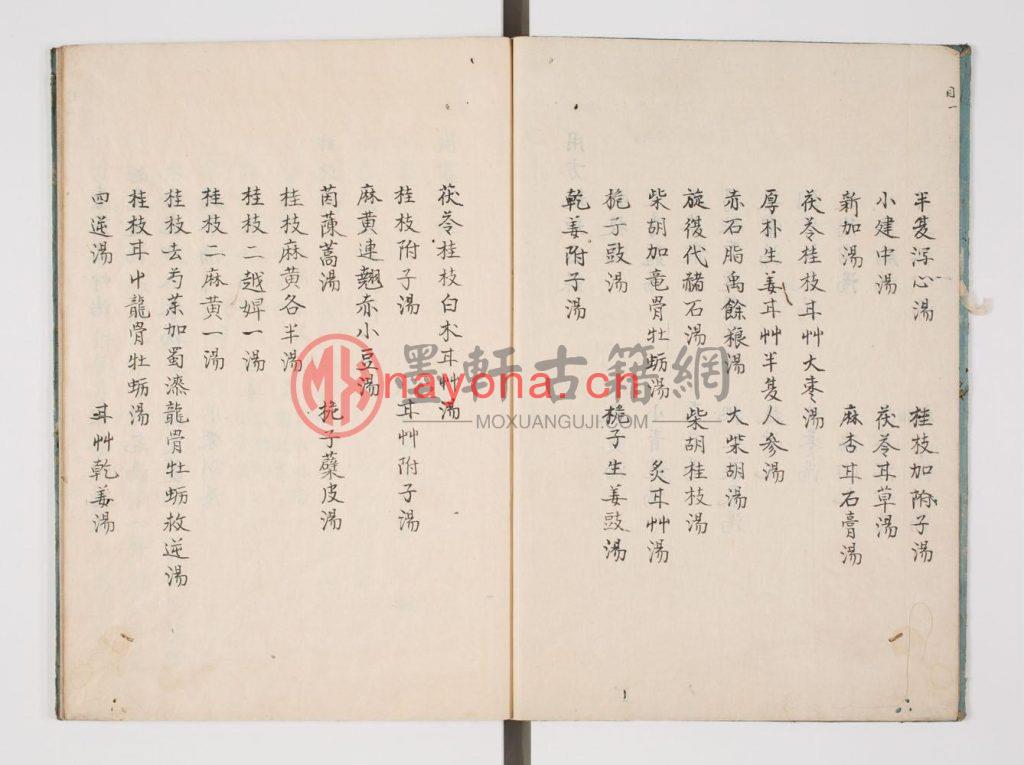 目一
半夏浮心湯　桂枝加附子湯
小建中湯　茯苓耳草湯
新加湯　麻杏耳石膏湯
茯苓桂枝耳艸大棗湯
厚朴生姜耳艸半夏人參湯
赤石脂禹餘粮湯　大柴胡湯
旋復代赭石湯　柴胡桂枝湯
柴胡加竜骨牡蛎湯　炙耳艸湯
梔子豉湯　梔子生姜豉湯
乾姜附子湯
茯苓桂枝白朮耳艸湯
桂枝附子湯　耳艸附子湯
麻黄連翹赤小豆湯
茵蔯蒿湯　梔子蘗皮湯
桂枝麻黄各半湯
桂枝二越婢一湯
桂枝二麻黄一湯
桂枝去芍茱加蜀漆龍骨牡蛎救逆湯
桂枝耳艸龍骨牡蛎湯
四逆湯　耳艸乾姜湯
墨軒古籍網
nayona.cn
MOXUANGUJI.COM